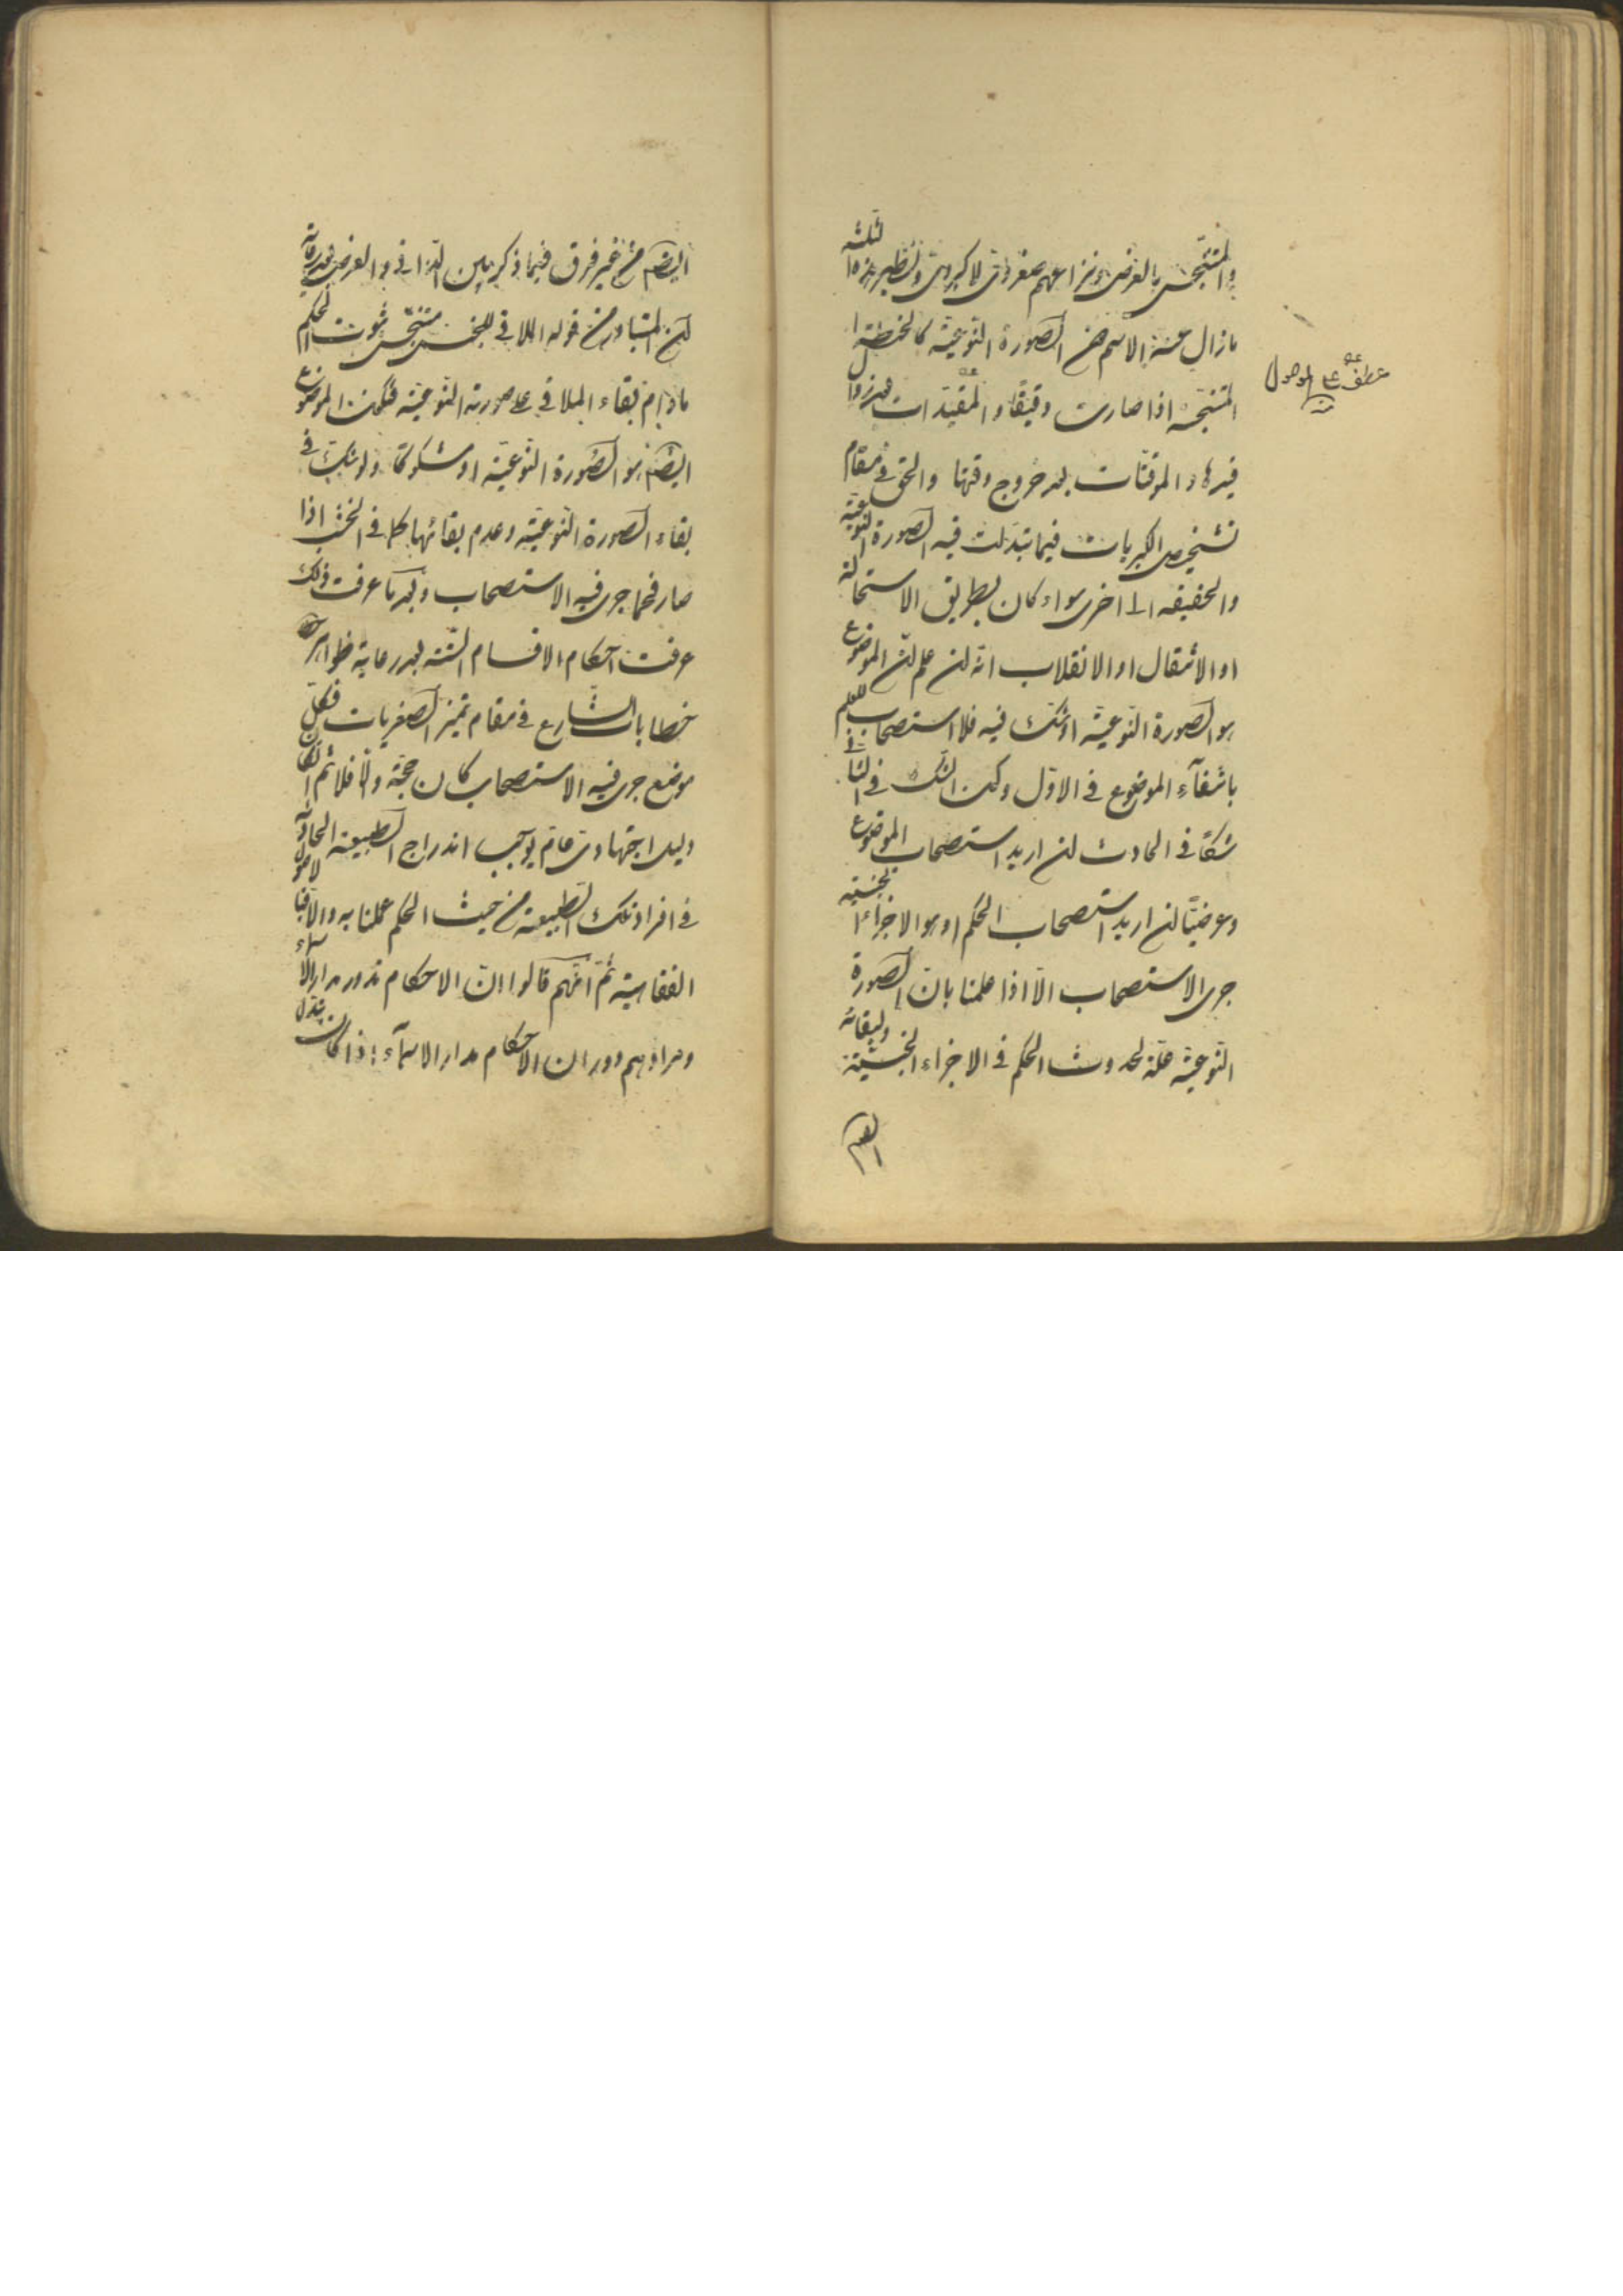 والمتنجس بالعرض ونزاعهم صغروى لا كبروى ونظير هذه الثلثة
ما زال عنه الاسم من الصورة النوعية كالحنطة
المتنجسة اذا صارت دقيقا والمقيدات بعد زوال
عطف على الموصول
قيدها والموقتات بعد خروج وقتها والحق في مقام
تشخيص الكبريات فيما تبدلت فيه الصورة النوعية
والحقيقة الى اخرى سواء كان بطريق الاستحالة
او الانتقال او الانقلاب انه ان علم ان الموضوع
هو الصورة النوعية او شك فيه فلا استصحاب للعلم
بانتفاء الموضوع في الاول وكون الشك في الثاني
شكا في الحادث ان اريد استصحاب الموضوع
وعرضيا ان اريد استصحاب الحكم او هو الاجزاء الجنسية
جرى الاستصحاب الا اذا علمنا بان الصورة
النوعية علة لحدوث الحكم في الاجزاء الجنسية ولبقائه
ايضا من غير فرق فيما ذكر بين الذاتى والعرضى بعد رعاية
ان المتبادر من قوله الملاقى للنجس متنجس ثبوت الحكم
مادام بقاء الملاقى على صورته النوعية فيكون الموضوع
ايضا هو الصورة النوعية او مشكوكا ولو شك في
بقاء الصورة النوعية وعدم بقائها كما في الخشب اذا
صار فحما جرى فيه الاستصحاب وبعد ما عرفت ذلك
عرفت احكام الاقسام الستة بعد رعاية ظواهر
خطابات الشارع في مقام تميز الصغريات فكل
موضع جرى فيه الاستصحاب كان حجة والا فلا ثم ان كان
دليل اجتهادى عام يوجب اندراج الطبيعة الحادثة
في افراد تلك الطبيعة من حيث الحكم عملنا به والا فبالاصول
الفقاهية ثم انهم قالوا ان الاحكام تدور مدار الاسماء
ومرادهم دوران الاحكام مدار الاسماء اذا كان تبدل